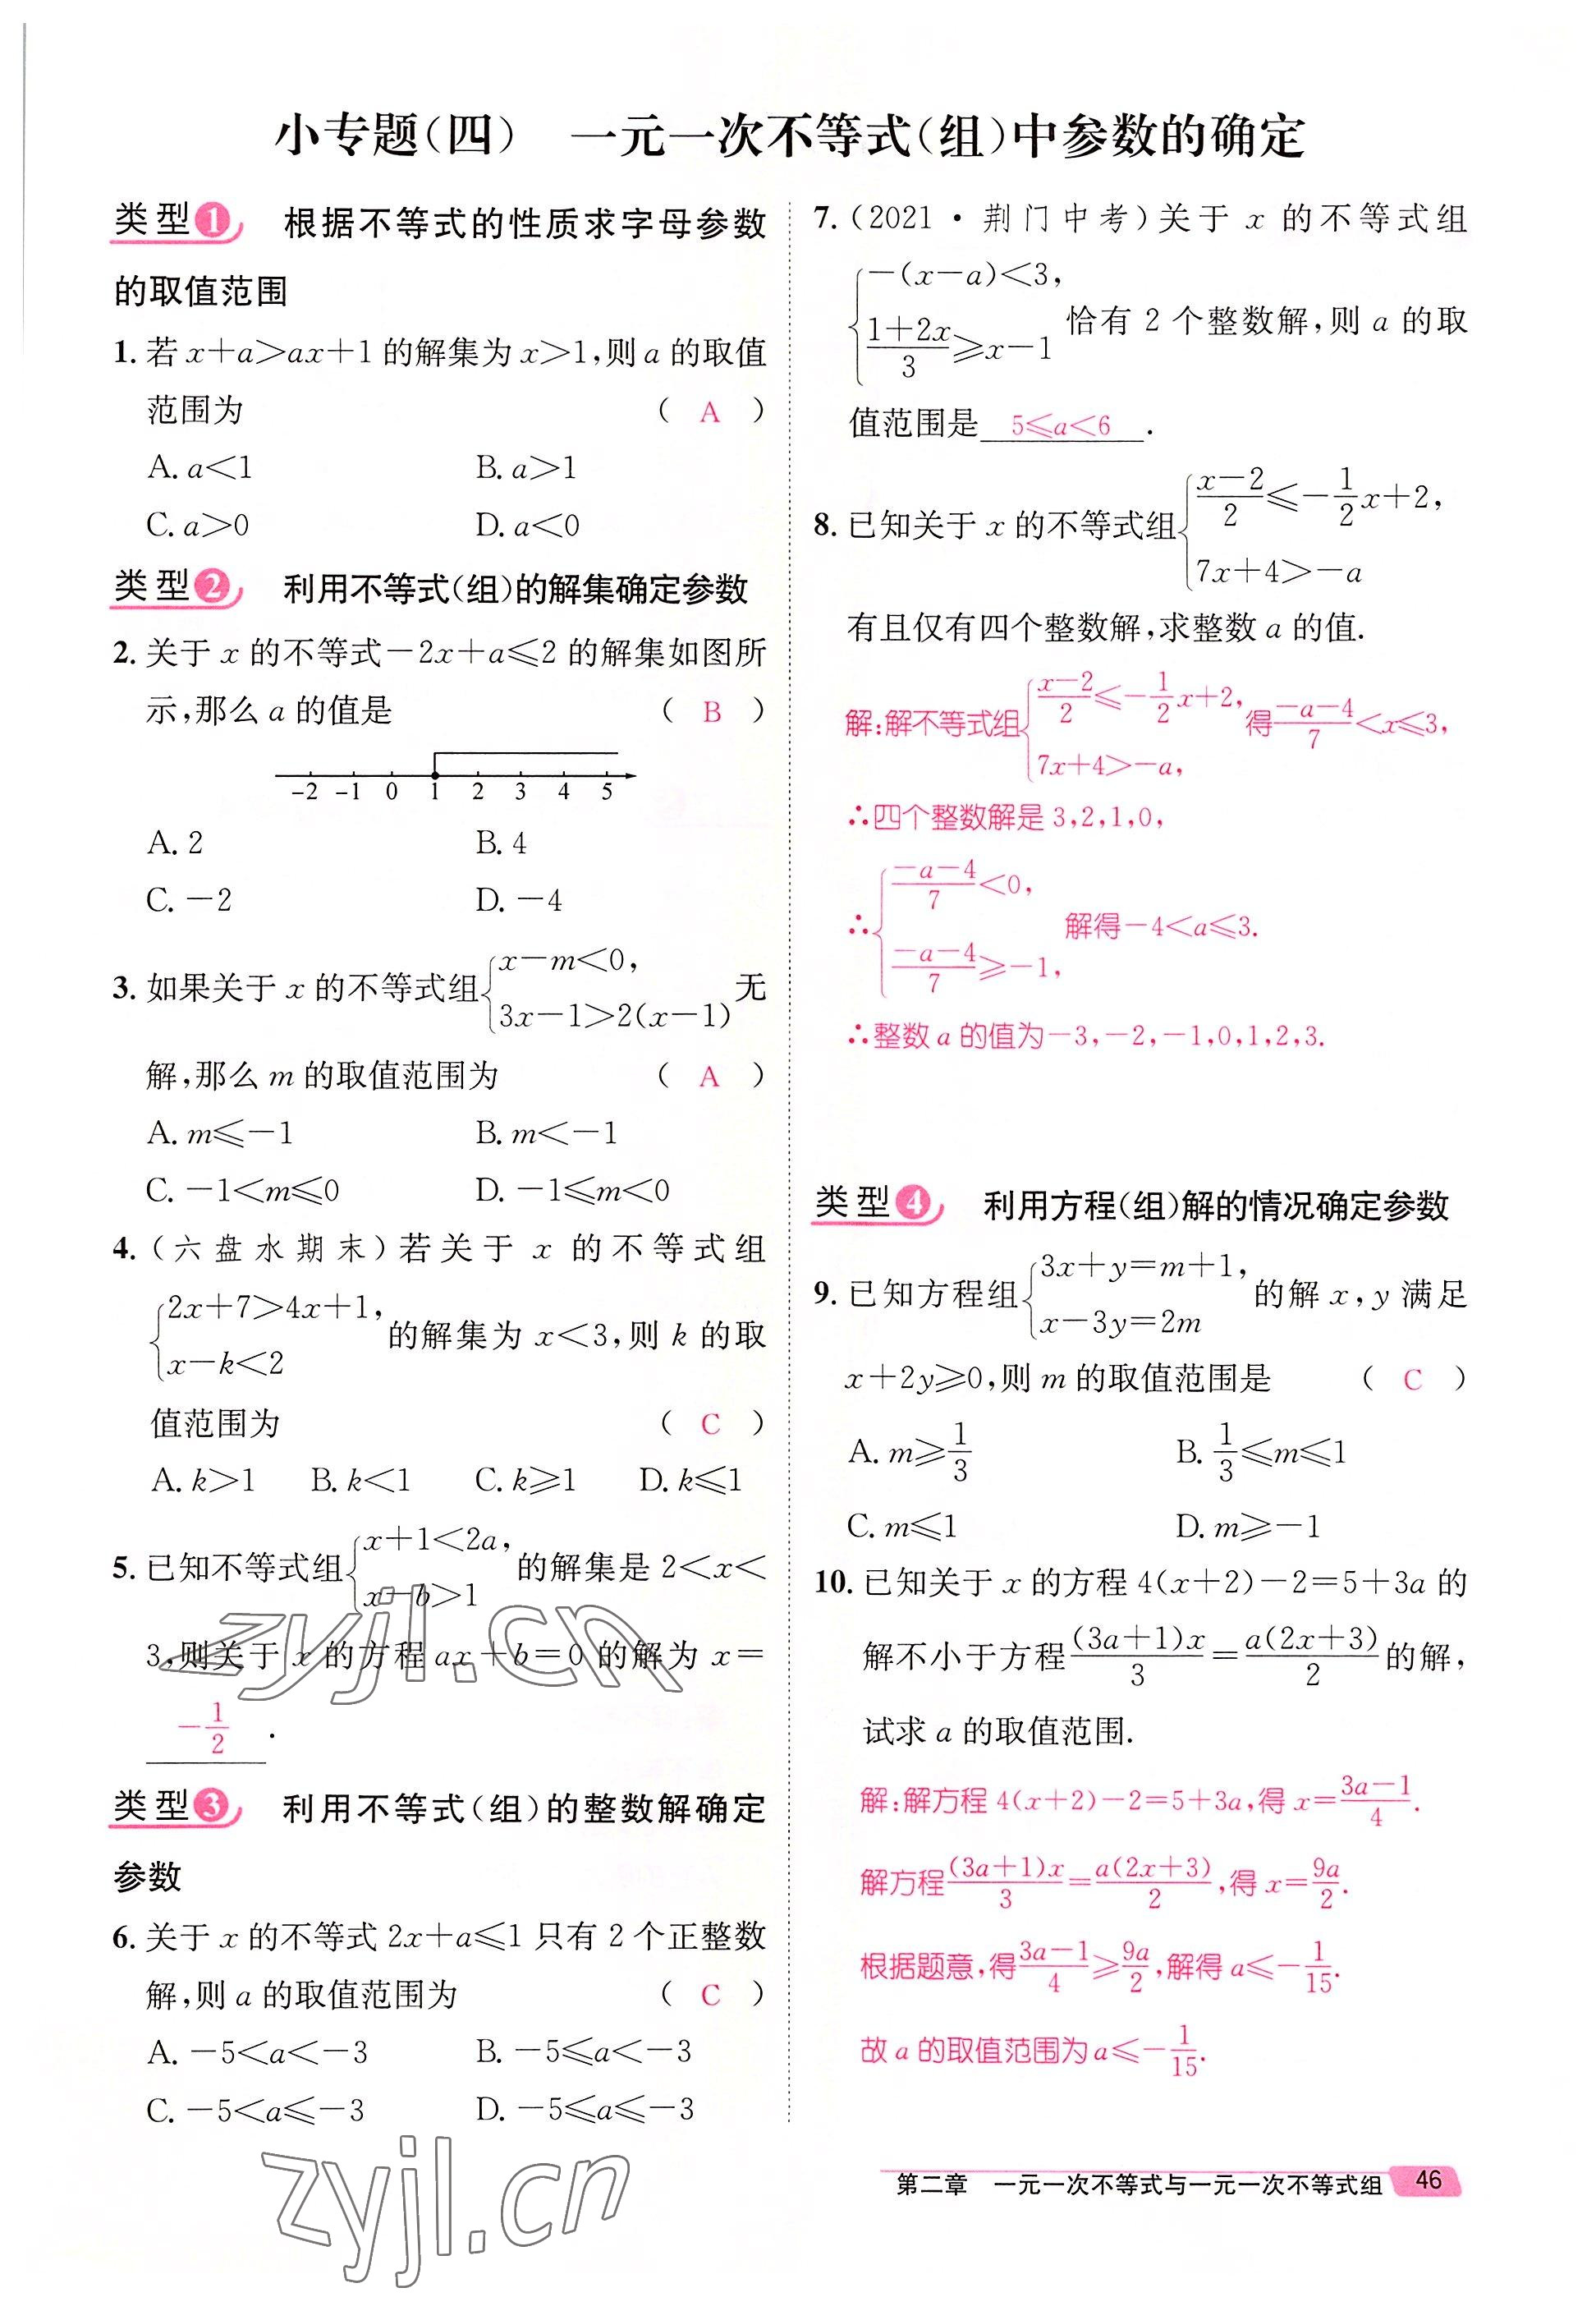 小专题(四)　一元一次不等式(组)中参数的确定
类型1　根据不等式的性质求字母参数
的取值范围
1. 若 x+a>ax+1 的解集为 x>1,则 a 的取值
范围为 ( A )
A. a<1　B. a>1
C. a>0　D. a<0
类型2　利用不等式(组)的解集确定参数
2. 关于 x 的不等式-2x+a≤2 的解集如图所
示,那么 a 的值是 ( B )
-2 -1 0 1 2 3 4 5
A. 2　B. 4
C. -2　D. -4
3. 如果关于 x 的不等式组{x-m<0, 3x-1>2(x-1) 无
解,那么 m 的取值范围为 ( A )
A. m≤-1　B. m<-1
C. -1<m≤0　D. -1≤m<0
4. (六盘水期末)若关于 x 的不等式组
{2x+7>4x+1, x-k<2 的解集为 x<3,则 k 的取
值范围为 ( C )
A. k>1　B. k<1　C. k≥1　D. k≤1
5. 已知不等式组{x+1<2a, x-b>1 的解集是 2<x<
3,则关于 x 的方程 ax+b=0 的解为 x=
-1/2 .
类型3　利用不等式(组)的整数解确定
参数
6. 关于 x 的不等式 2x+a≤1 只有 2 个正整数
解,则 a 的取值范围为 ( C )
A. -5<a<-3　B. -5≤a<-3
C. -5<a≤-3　D. -5≤a≤-3
7. (2021·荆门中考)关于 x 的不等式组
{-(x-a)<3, (1+2x)/3≥x-1 恰有 2 个整数解,则 a 的取
值范围是 5≤a<6 .
8. 已知关于 x 的不等式组{(x-2)/2≤-1/2x+2, 7x+4>-a
有且仅有四个整数解,求整数 a 的值.
解:解不等式组{(x-2)/2≤-1/2x+2, 7x+4>-a, 得(-a-4)/7<x≤3,
∴四个整数解是 3,2,1,0,
∴{(-a-4)/7<0, (-a-4)/7≥-1, 解得-4<a≤3.
∴整数 a 的值为-3,-2,-1,0,1,2,3.
类型4　利用方程(组)解的情况确定参数
9. 已知方程组{3x+y=m+1, x-3y=2m 的解 x,y 满足
x+2y≥0,则 m 的取值范围是 ( C )
A. m≥1/3　B. 1/3≤m≤1
C. m≤1　D. m≥-1
10. 已知关于 x 的方程 4(x+2)-2=5+3a 的
解不小于方程(3a+1)x/3=a(2x+3)/2的解,
试求 a 的取值范围.
解:解方程 4(x+2)-2=5+3a,得 x=(3a-1)/4.
解方程(3a+1)x/3=a(2x+3)/2,得 x=9a/2.
根据题意,得(3a-1)/4≥9a/2,解得 a≤-1/15.
故 a 的取值范围为 a≤-1/15.
zyjl.cn
zyjl.cn
第二章　一元一次不等式与一元一次不等式组 46